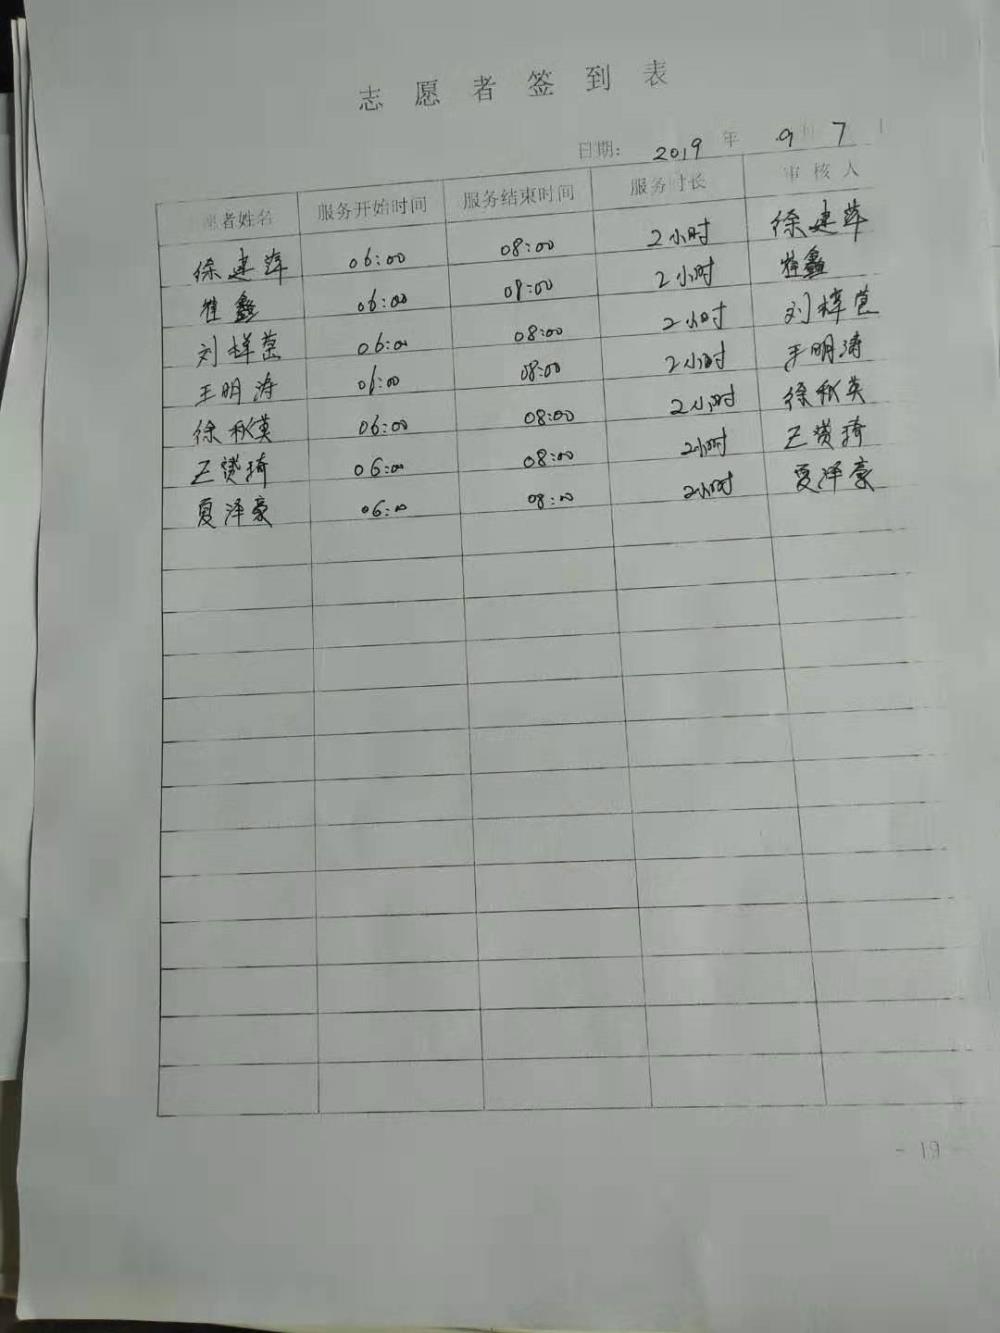 志愿者签到表
日期: 2019 年 9 7
愿者姓名 服务开始时间 服务结束时间 服务时长 审核人
徐建萍 06:00 08:00 2小时 徐建萍
崔鑫 06:00 08:00 2小时 崔鑫
刘梓萱 06:00 08:00 2小时 刘梓萱
王明涛 06:00 08:00 2小时 王明涛
徐秋英 06:00 08:00 2小时 徐秋英
王贤琦 06:00 08:00 2小时 王贤琦
夏泽豪 06:00 08:00 2小时 夏泽豪
- 19